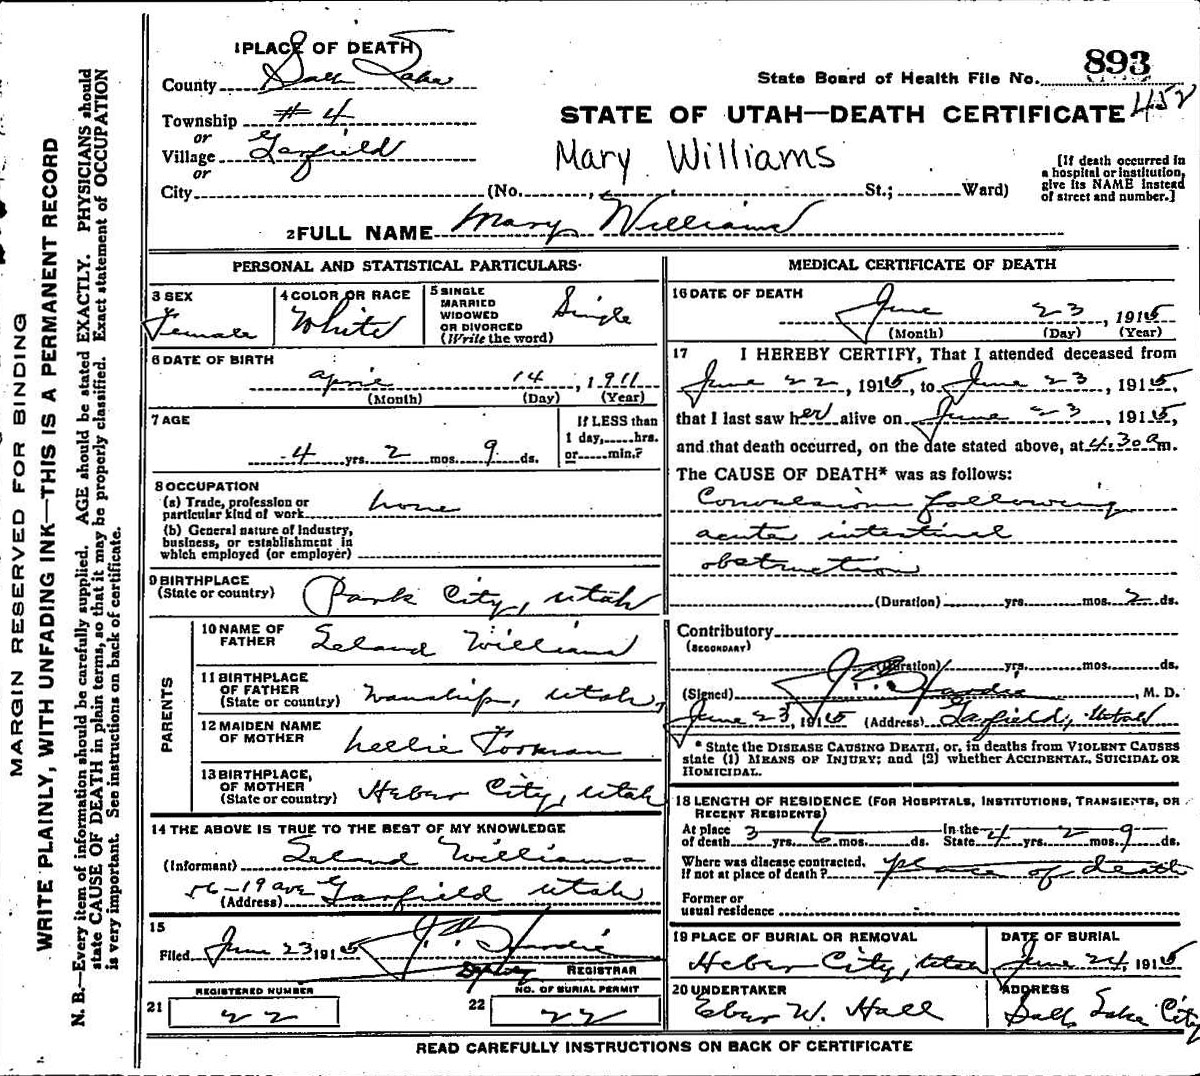 MARGIN RESERVED FOR BINDING
WRITE PLAINLY, WITH UNFADING INK—THIS IS A PERMANENT RECORD
N. B.—Every item of information should be carefully supplied. AGE should be stated EXACTLY. PHYSICIANS should
state CAUSE OF DEATH in plain terms, so that it may be properly classified. Exact statement of OCCUPATION
is very important. See instructions on back of certificate.
1 PLACE OF DEATH
County Salt Lake
Township #4
or
Village Garfield
or
City (No. St.; Ward)
State Board of Health File No. 893
452
STATE OF UTAH—DEATH CERTIFICATE
Mary Williams
[If death occurred in
a hospital or institution,
give its NAME instead
of street and number.]
2 FULL NAME Mary Williams
PERSONAL AND STATISTICAL PARTICULARS
3 SEX
Female
4 COLOR OR RACE
White
5 SINGLE
MARRIED
WIDOWED
OR DIVORCED
(Write the word)
Single
6 DATE OF BIRTH
April 14, 1911
(Month) (Day) (Year)
7 AGE
4 yrs. 2 mos. 9 ds.
If LESS than
1 day, hrs.
or min.?
8 OCCUPATION
(a) Trade, profession or
particular kind of work none
(b) General nature of industry,
business, or establishment in
which employed (or employer)
9 BIRTHPLACE
(State or country) Park City, Utah
PARENTS
10 NAME OF
FATHER Leland Williams
11 BIRTHPLACE
OF FATHER
(State or country) Wanship, Utah,
12 MAIDEN NAME
OF MOTHER Nellie Forman
13 BIRTHPLACE,
OF MOTHER
(State or country) Heber City, Utah
14 THE ABOVE IS TRUE TO THE BEST OF MY KNOWLEDGE
(Informant) Leland Williams
56-19 ave Garfield Utah
(Address)
15
Filed June 23 1915 Hardie
Deputy REGISTRAR
REGISTERED NUMBER
21 22
NO. OF BURIAL PERMIT
22 22
MEDICAL CERTIFICATE OF DEATH
16 DATE OF DEATH
June 23, 1915
(Month) (Day) (Year)
17 I HEREBY CERTIFY, That I attended deceased from
June 22, 1915, to June 23, 1915,
that I last saw her alive on June 23, 1915,
and that death occurred, on the date stated above, at 4.30 a m.
The CAUSE OF DEATH* was as follows:
Convulsions following
acute intestinal
obstruction
(Duration) yrs. mos. 2 ds.
Contributory
(SECONDARY)
(Duration) yrs. mos. ds.
(Signed) Hardie, M. D.
June 23, 1915 (Address) Garfield, Utah
* State the DISEASE CAUSING DEATH, or, in deaths from VIOLENT CAUSES
state (1) MEANS OF INJURY; and (2) whether ACCIDENTAL, SUICIDAL OR
HOMICIDAL.
18 LENGTH OF RESIDENCE (FOR HOSPITALS, INSTITUTIONS, TRANSIENTS, OR
RECENT RESIDENTS)
At place In the
of death 3 yrs. 6 mos. ds. State 4 yrs. 2 mos. 9 ds.
Where was disease contracted,
If not at place of death? place of death
Former or
usual residence
19 PLACE OF BURIAL OR REMOVAL
Heber City, Utah
DATE OF BURIAL
June 24, 1915
20 UNDERTAKER
Eber W. Hall
ADDRESS
Salt Lake City
READ CAREFULLY INSTRUCTIONS ON BACK OF CERTIFICATE